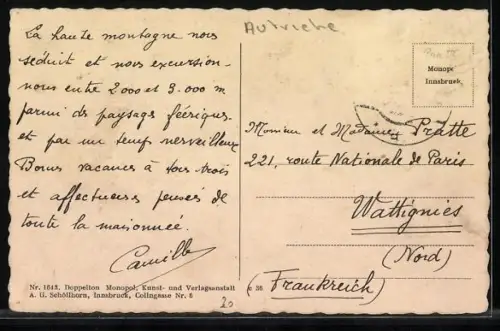 Autriche
La haute montagne nous
séduit et nous excursion-
nous entre 2000 et 3.000 m
parmi ds paysage féériques
et par un temps merveilleux
Bonnes vacances à tous trois
et affectueuses pensées de
toute la maisonnée.
Camille
Monopl
Innsbruck
Monsieur et Madame Pratte
221, route Nationale de Paris
Wattignies
(Nord)
(Frankreich)
Nr. 1643. Doppelton Monopol, Kunst- und Verlagsanstalt
A. G. Schöllhorn, Innsbruck, Colingasse Nr. 6
e 36
20